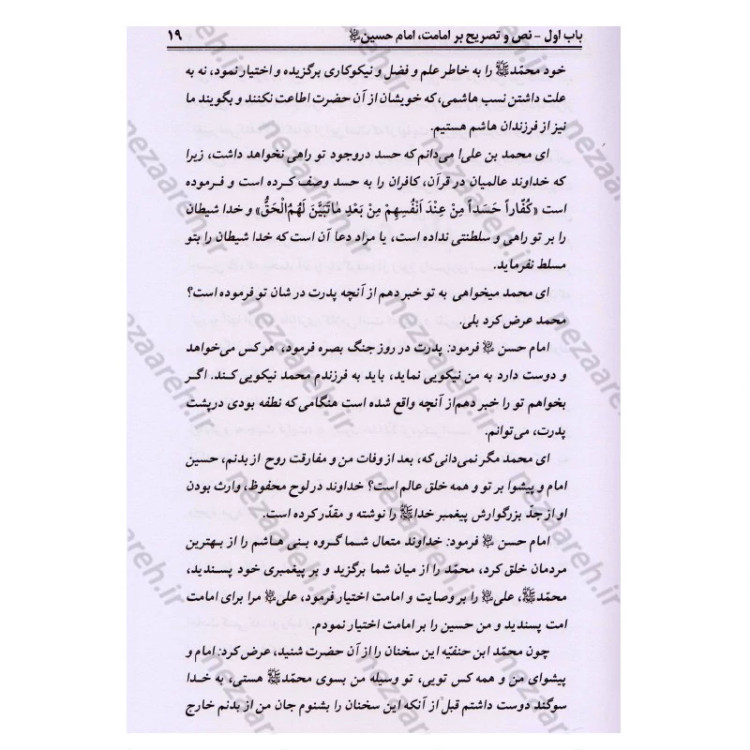 باب اول - نص و تصریح بر امامت، امام حسین ﷺ ۱۹
خود محمّدﷺ را به خاطر علم و فضل و نیکوکاری برگزیده و اختیار نمود، نه به
علت داشتن نسب هاشمی، که خویشان از آن حضرت اطاعت نکنند و بگویند ما
نیز از فرزندان هاشم هستیم.
ای محمد بن علی! می‌دانم که حسد دروجود تو راهی نخواهد داشت، زیرا
که خداوند عالمیان در قرآن، کافران را به حسد وصف کرده است و فرموده
است «كُفّاراً حَسَداً مِنْ عِنْدِ اَنْفُسِهِمْ مِنْ بَعْدِ ماتَبَيَّنَ لَهُمُ الْحَقُّ» و خدا شیطان
را بر تو راهی و سلطنتی نداده است، یا مراد دعا آن است که خدا شیطان را بتو
مسلط نفرماید.
ای محمد میخواهی به تو خبر دهم از آنچه پدرت در شان تو فرموده است؟
محمد عرض کرد بلی.
امام حسن فرمود: پدرت در روز جنگ بصره فرمود، هر کس می‌خواهد
و دوست دارد به من نیکویی نماید، باید به فرزندم محمد نیکویی کند. اگر
بخواهم تو را خبر دهم‌از آنچه واقع شده است هنگامی که نطفه بودی درپشت
پدرت، می‌توانم.
ای محمد مگر نمی‌دانی که، بعد از وفات من و مفارقت روح از بدنم، حسین
امام و پیشوا بر تو و همه خلق عالم است؟ خداوند در لوح محفوظ، وارث بودن
او از جدّ بزرگوارش پیغمبر خداﷺ را نوشته و مقدّر کرده است.
امام حسن فرمود: خداوند متعال شما گروه بنی هاشم را از بهترین
مردمان خلق کرد، محمّد را از میان شما برگزید و بر پیغمبری خود پسندید،
محمّدﷺ، علی را بر وصایت و امامت اختیار فرمود، علی مرا برای امامت
امت پسندید و من حسین را بر امامت اختیار نمودم.
چون محمّد ابن حنفیّه این سخنان را از آن حضرت شنید، عرض کرد: امام و
پیشوای من و همه کس تویی، تو وسیله من بسوی محمّدﷺ هستی، به خدا
سوگند دوست داشتم قبل از آنکه این سخنان را بشنوم جان من از بدنم خارج
nezaareh.ir